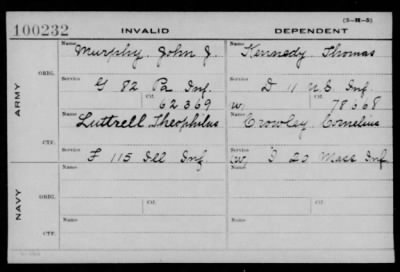 (3-H-3)
100232 INVALID DEPENDENT
Name Murphy, John J. Name Kennedy Thomas
ARMY
ORIG.
Service G 82 Pa Inf. Service D 11 U.S. Inf.
Ctf. 62369 W. Ctf. 78668
Name Luttrell, Theophilus Name Crowley, Cornelius
CTF.
Service F 115 Ill Inf Service (W. I 20 Mass Inf
NAVY
Name Name
ORIG.
Service Ctf. Service Ctf.
Name Name
CTF.